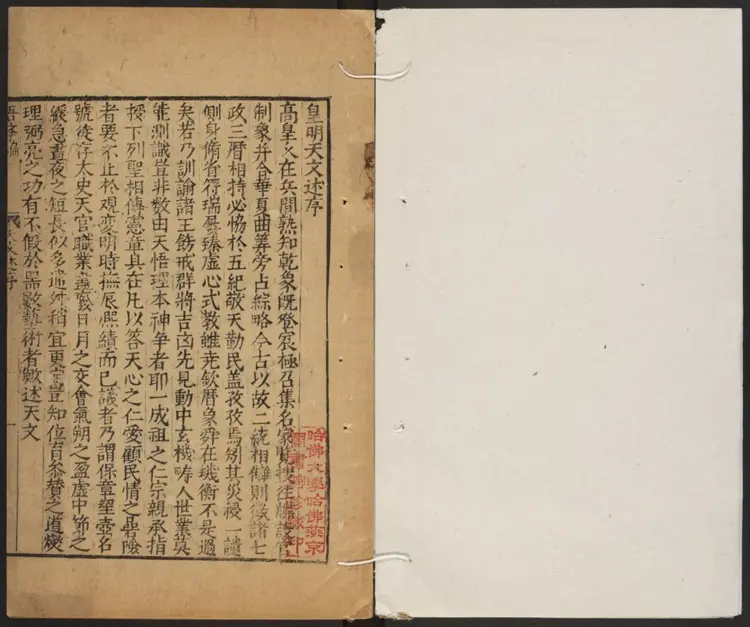 皇明天文述序
高皇久在兵間熟知乾象既登宸極召集名家
制象并合華夏曲筭旁占綜略今古以故二統相讎則徵諸七
政三曆相持必恊於五紀敬天勤民盖孜孜焉矧其災祲一譴
側身脩省符瑞疊臻虚心式教雖尭欽曆象舜在璣衡不是過
矣若乃訓諭諸王飭戒群將吉凶先見動中玄機疇人世業莫
能測識豈非數由天悟理本神争者耶一成祖之仁宗親承指
授下列聖相傳憲章具在凡以答天心之仁愛顧民情之碞險
者要不止於觀変明時撫辰熈績而已議者乃謂保章挈壺名
號徒存太史天官職業盡廢日月之交會氣朔之盈虚中節之
緩急晝夜之短長似多遺舛稍宜更定豈知位育叅賛之道爕
理弼亮之功有不假於器數藝術者歟述天文
吾學編
天文述序
哈佛大學哈佛燕京
圖書館珍藏印